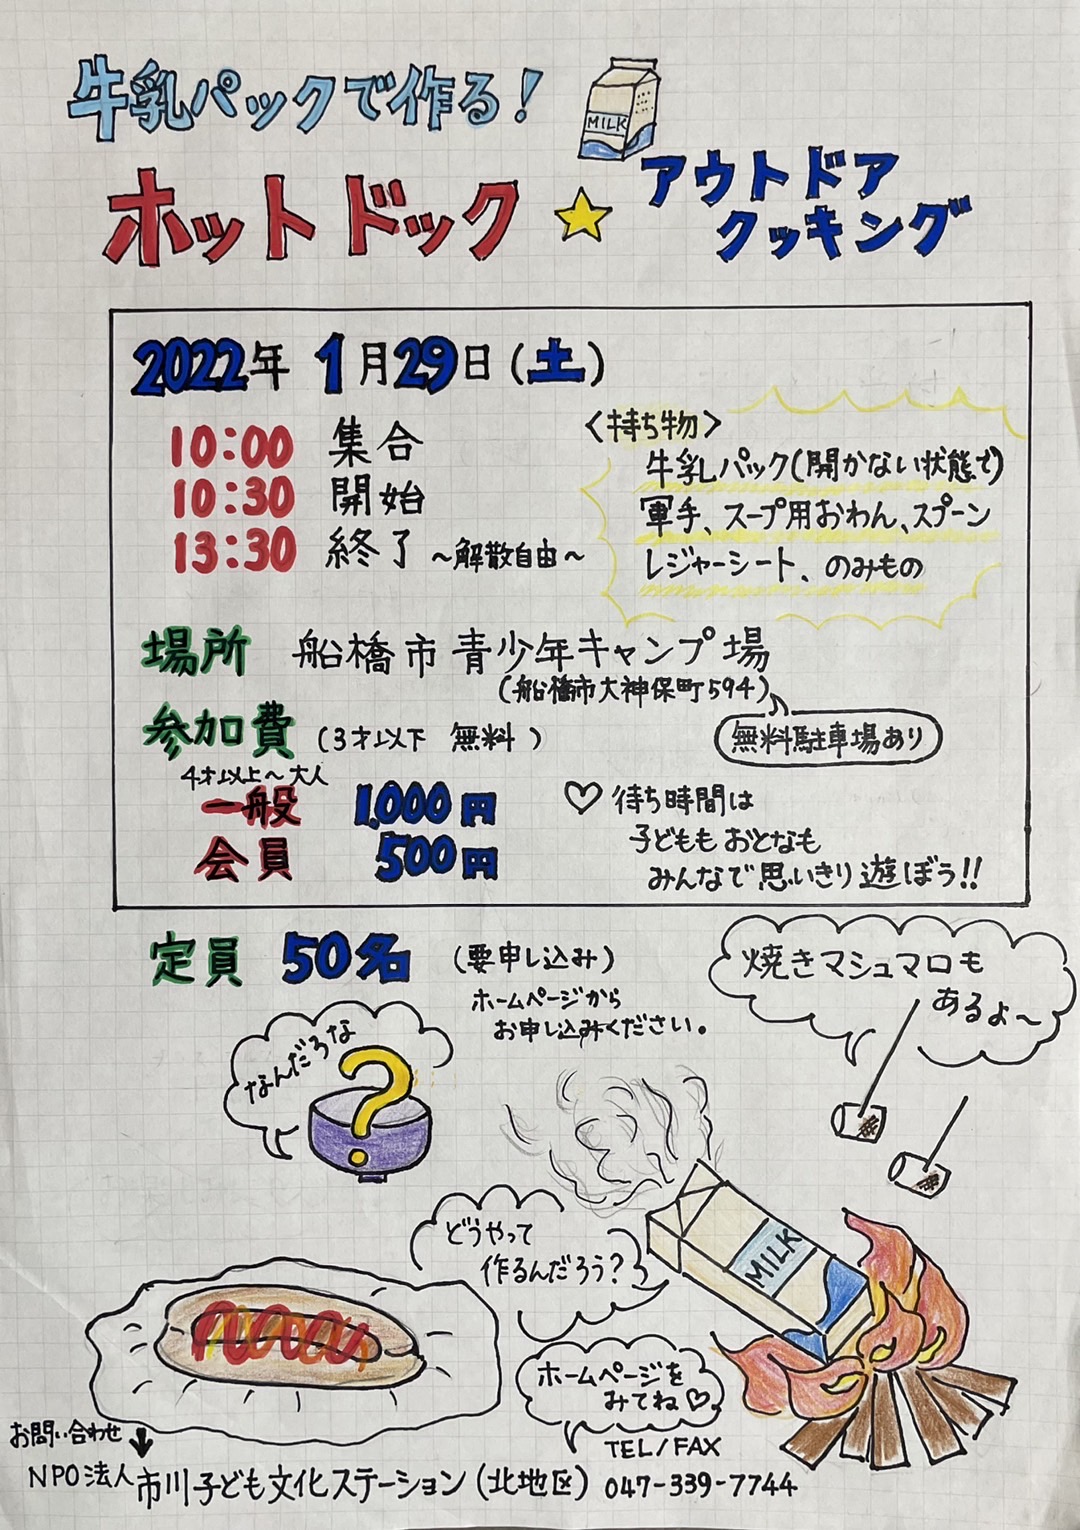 牛乳パックで作る!
MILK
ホットドック☆アウトドア
クッキング
2022年 1月29日(土)
10:00 集合
10:30 開始
13:30 終了 ~解散自由~
<持ち物>
牛乳パック(開かない状態で)
軍手、スープ用おわん、スプーン
レジャーシート、のみもの
場所 船橋市青少年キャンプ場
(船橋市大神保町594)
無料駐車場あり
参加費 (3才以下 無料)
4才以上~大人
一般 1,000円
会員 500円
♡待ち時間は
子どもも おとなも
みんなで思いきり遊ぼう!!
定員 50名 (要申し込み)
ホームページから
お申し込みください。
焼きマシュマロも
あるよ~
なんだろな
?
どうやって
作るんだろう?
MILK
ホームページを
みてね♡
お問い合わせ
TEL/FAX
NPO法人市川子ども文化ステーション(北地区) 047-339-7744